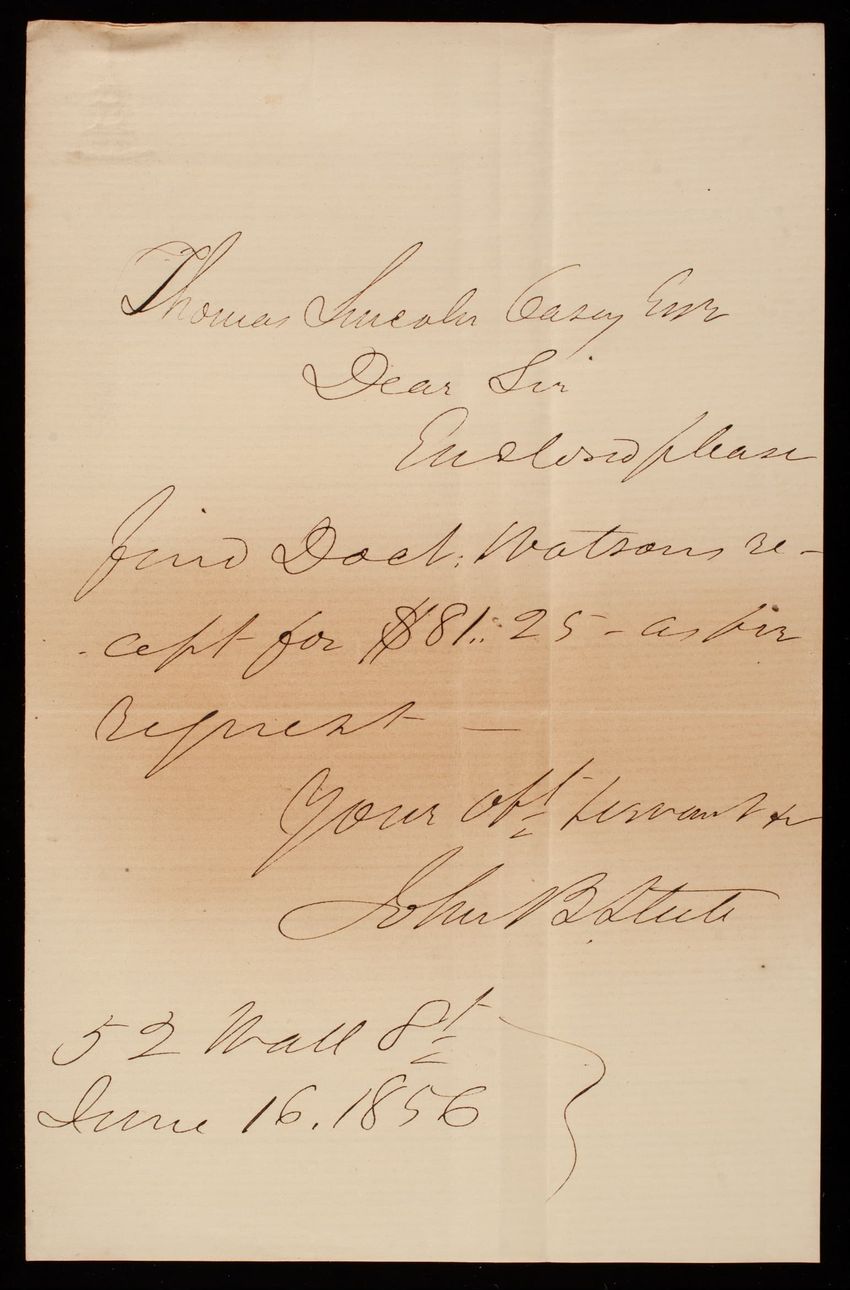 Thomas Lincoln Casey Esqr
Dear Sir
Enclosed please
find Doct: Watsons re-
-cept for $81..25 - as per
request —
Your obt servant &c
John B. Steele
52 Wall St
June 16. 1856